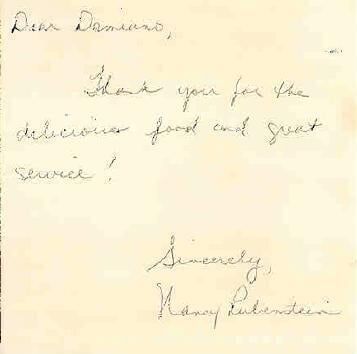 Dear Damiano,
Thank you for the
delicious food and great
service!
Sincerely,
Nancy Rubenstein